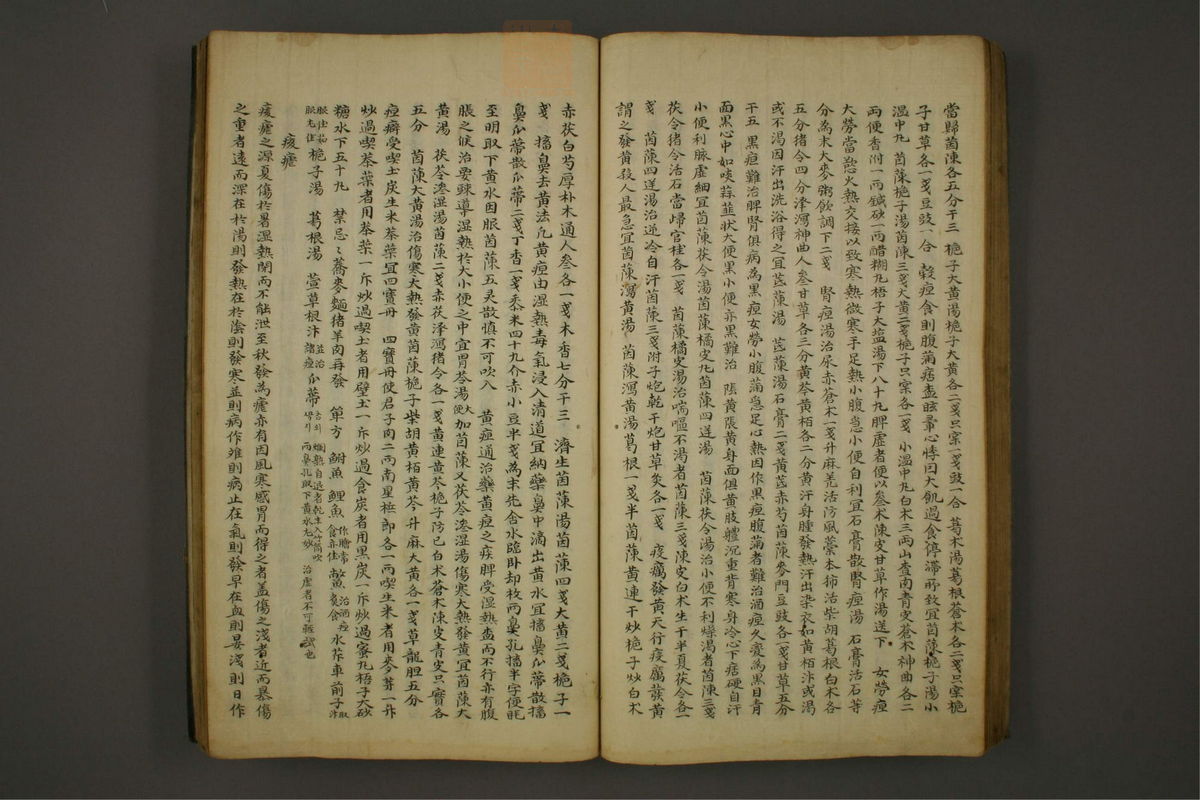 當歸茵蔯各五分干三 梔子大黃湯梔子大黃各二戔只宲一戔豉一合 葛朮湯葛根蒼朮各二戔只宲梔
子甘草各一戔豆豉一合 穀疸食則腹滿痞盍眩暈心悸因大飢過食停滯所致宜茵蔯梔子湯小
溫中丸 茵蔯梔子湯茵蔯三戔大黃二戔梔子只宲各一戔 小溫中丸白朮三兩山査南青皮蒼朮神曲各二
兩便香附一兩鍼砂一兩醋糊丸梧子大塩湯下八十九脾虛者便以參朮陳皮甘草作湯送下 女勞疸
大勞當慾火熱交接以致寒熱微寒手足熱小腹急小便自利宜石膏散腎疸湯 石膏活石等
分為末大麥粥飮調下二戔 腎疸湯治尿赤蒼朮一戔升麻羌活防風藁本柿活柴胡葛根白朮各
五分猪令四分泽瀉神曲人參甘草各三分黃芩黃栢各二分黃汗身腫發熱汗出染衣如黃栢汁或渴
或不渴因汗出洗浴得之宜芪蔯湯 芪蔯湯石膏二戔黃芪赤芍茵蔯麥門豆豉各一戔甘草五分
干五 黒疸難治脾腎俱病為黒疸女勞小腹滿急足心熱因作黒疸腹滿者難治酒疸久変為黒目青
面黒心中如啖蒜韮狀大便黒小便亦黒難治 脹黃脹黃身面俱黃肢軆沉重背寒身冷心下痞硬自汗
小便利脉虛細宜茵蔯茯令湯茵蔯橘皮丸茵蔯四逆湯 茵蔯茯令湯治小便不利燥渴者茵蔯三戔
茯令猪令活石當歸官桂各一戔 茵蔯橘皮湯治喘嘔不渴者茵蔯三戔陳皮白朮生干半夏茯令各一
戔 茵蔯四逆湯治逆冷自汗茵蔯三戔附子炮乾干炮甘草炙各一戔 疫癘發黃天行疫癘發黃
謂之發黃殺人最急宜茵蔯瀉黃湯 茵蔯瀉黃湯葛根一戔半茵蔯黃連干炒梔子炒白朮
赤茯白芍厚朴木通人參各一戔木香七分干三 濟生茵蔯湯茵蔯四戔大黃二戔梔子一
戔 搐鼻去黃法凡黃疸由湿熱毒氣浸入清道宜納藥鼻中滴出黃水宜搐鼻瓜蒂散搐
鼻瓜蒂散瓜蒂二戔丁香一戔黍米四十九介赤小豆半戔為末先含水臨卧却枚兩鼻孔搐半字便睡
至明取下黃水因服茵蔯五灵散慎不可吹入 黃疸通治藥黃疸之疾脾受湿熱盍而不行亦有腹
脹之候治要疎導湿熱於大小便之中宜胃苓湯大便加茵蔯又茯苓滲湿湯傷寒大熱發黃宜茵蔯大
黃湯 茯苓滲湿湯茵蔯二戔赤茯泽瀉猪令各一戔黃連黃芩梔子防已白朮蒼朮陳皮青皮只實各
五分 茵蔯大黃湯治傷寒大熱發黃茵蔯梔子柴胡黃栢黃芩升麻大黃各一戔草龍胆五分
疸癖受喫土炭生米茶葉宜四寶丹 四寶丹使君子肉二兩南星梹郎各一兩喫生米者用麥芽一斤
炒過喫茶葉者用茶葉一斤炒過喫土者用壁土一斤炒過食炭者用黒炭一斤炒過蜜丸梧子大砂
糖水下五十九 禁忌忌蕎麥麵猪羊肉再發 單方 鮒魚 鯉魚作膾常食弃佳 鱉治酒疸炙食 水芹車前子取汁
服仕茄服尤佳 梔子湯 葛根湯 萱草根汁並治諸疸 瓜蒂
痎瘧
痎瘧之源夏傷於暑湿熱閉而不能泄至秋發為瘧亦有因風寒感冒而得之者盖傷之淺者近而暴傷
之重者遠而深在於陽則發熱在於陰則發寒並則病作離則病止在氣則發早在血則晏淺則日作